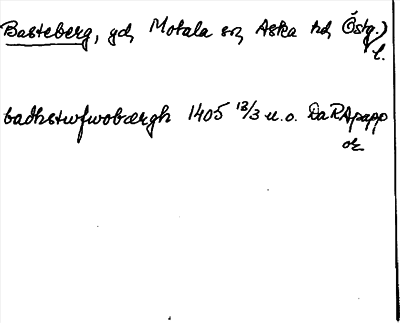 Basteberg, gd, Motala sn, Aska hd, Östg.)
l.
badhstwfwobærgh 1405 12/3 u.o. DaRApapp
or.